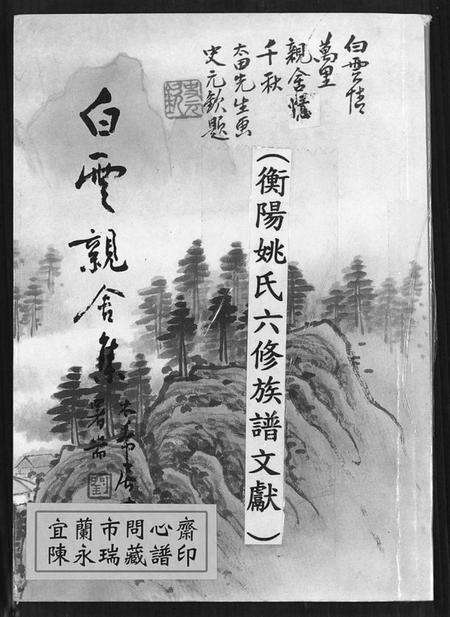 白雲情
萬里
親舍懷
千秋
太田先生畫
史元欽題
白雲親舍集
署耑
(衡陽姚氏六修族譜文獻)
宜蘭市問心齋
陳永瑞藏譜印